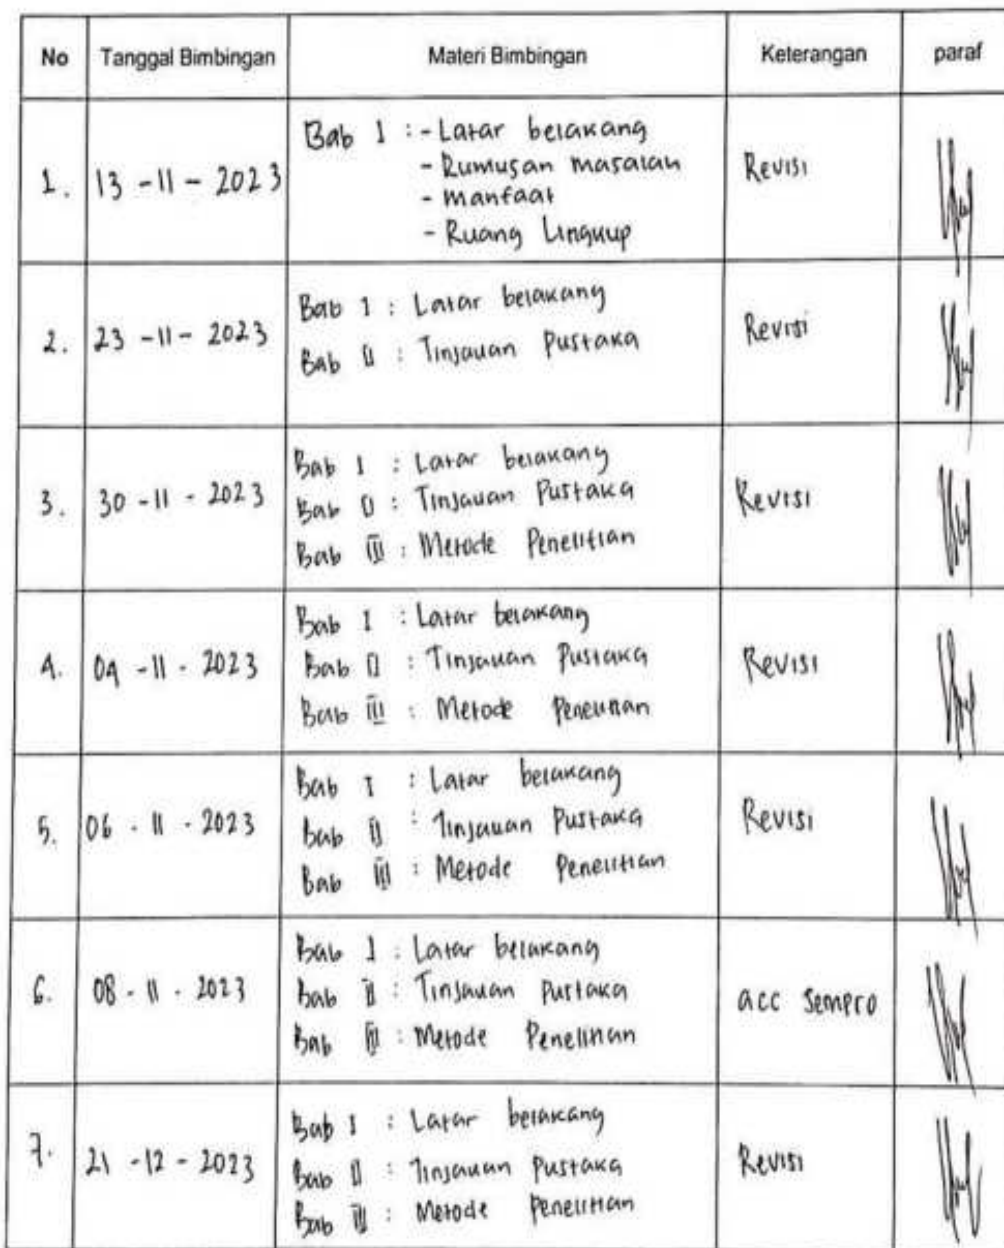 No Tanggal Bimbingan Materi Bimbingan Keterangan paraf
1. 13 - 11 - 2023 Bab I : - Latar belakang Revisi
- Rumusan masalah
- Manfaat
- Ruang Lingkup
2. 23 - 11 - 2023 Bab I : Latar belakang Revisi
Bab II : Tinjauan Pustaka
3. 30 - 11 - 2023 Bab I : Latar belakang Revisi
Bab II : Tinjauan Pustaka
Bab III : Metode Penelitian
4. 04 - 11 - 2023 Bab I : Latar belakang Revisi
Bab II : Tinjauan Pustaka
Bab III : Metode Penelitian
5. 06 - 11 - 2023 Bab I : Latar belakang Revisi
Bab II : Tinjauan Pustaka
Bab III : Metode Penelitian
6. 08 - 11 - 2023 Bab I : Latar belakang acc Sempro
Bab II : Tinjauan Pustaka
Bab III : Metode Penelitian
7. 21 - 12 - 2023 Bab I : Latar belakang Revisi
Bab II : Tinjauan Pustaka
Bab III : Metode Penelitian